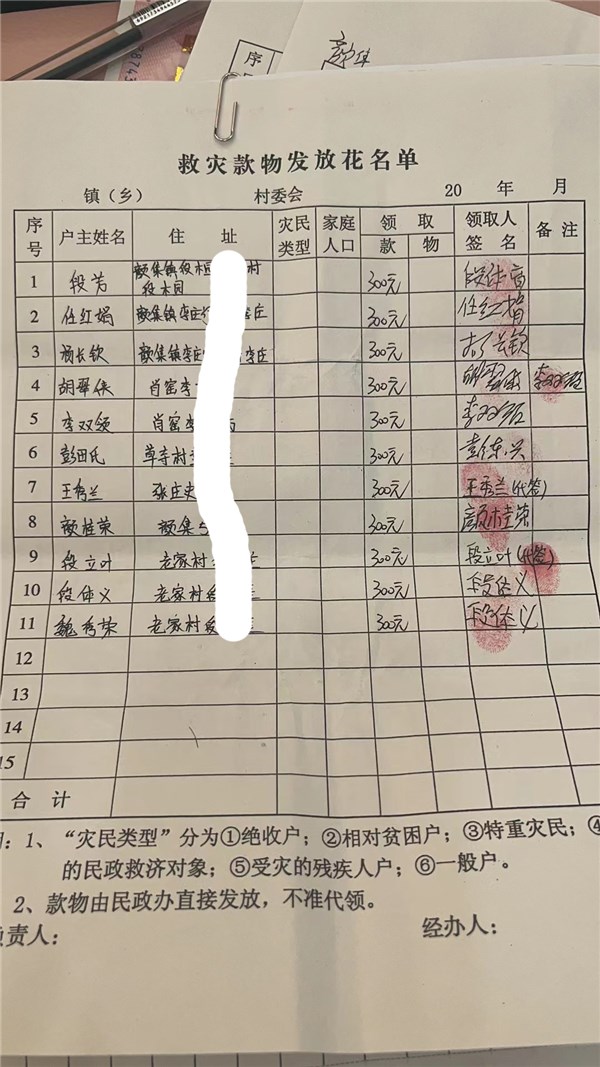 序
颜华
救灾款物发放花名单
镇（乡） 村委会 20 年 月
序号 户主姓名 住 址 灾民类型 家庭人口 领 取 领取人签 名 备 注
款 物
1 段芳 颜集镇段木园 村 300元
段木园
2 任红娟 颜集镇李庄 李庄 300元 任红娟
3 杨长钦 颜集镇李庄 李庄 300元 杨长钦
4 胡翠侠 肖窑李 300元 胡翠侠 李双领
5 李双领 肖窑李 300元 李双领
6 彭田氏 草寺村 300元 彭作兴
7 王秀兰 张庄史 300元 王秀兰（代签）
8 颜桂荣 颜集 300元 颜桂荣
9 段立叶 老家村 300元 段立叶（代签）
10 段体义 老家村 300元 段体义
11 魏秀荣 老家村 300元 段体义
12
13
14
15
合 计
：1、“灾民类型”分为①绝收户；②相对贫困户；③特重灾民；④
的民政救济对象；⑤受灾的残疾人户；⑥一般户。
2、款物由民政办直接发放，不准代领。
负责人： 经办人：